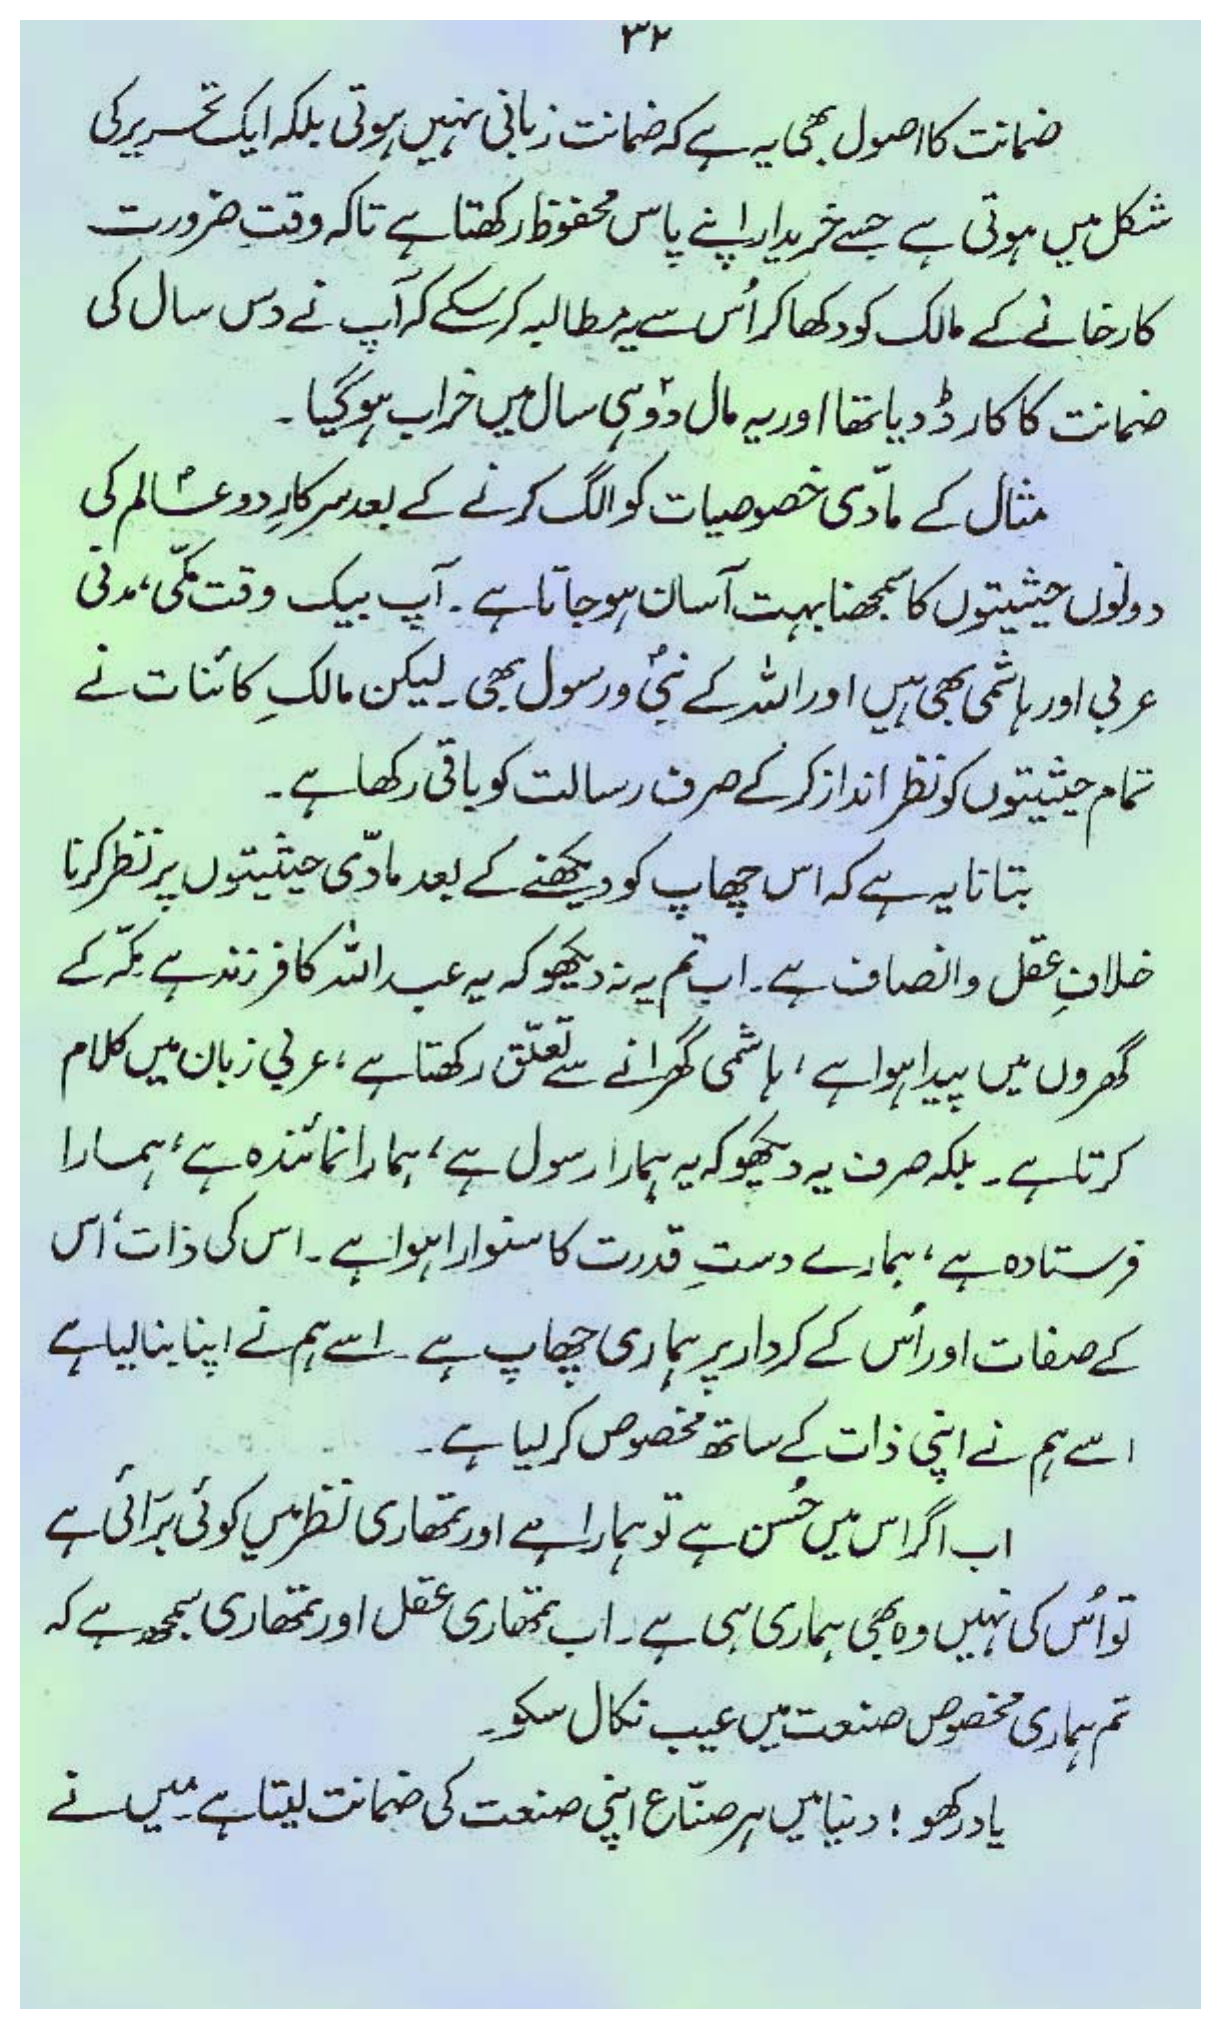 ۳۲
ضمانت کا اصول بھی یہ ہے کہ ضمانت زبانی نہیں ہوتی بلکہ ایک تحریر کی
شکل میں ہوتی ہے جسے خریدار اپنے پاس محفوظ رکھتا ہے تاکہ وقتِ ضرورت
کارخانے کے مالک کو دکھا کر اُس سے یہ مطالبہ کر سکے کہ آپ نے دس سال کی
ضمانت کا کارڈ دیا تھا اور یہ مال دو۲ ہی سال میں خراب ہو گیا ۔
مثال کے مادّی خصوصیات کو الگ کرنے کے بعد سرکارِ دو عالمؐ کی
دونوں حیثیتوں کا سمجھنا بہت آسان ہو جاتا ہے ۔ آپ بیک وقت مکّی، مدنی
عربی اور ہاشمی بھی ہیں اور اللہ کے نبیؐ و رسول بھی ۔ لیکن مالکِ کائنات نے
تمام حیثیتوں کو نظر انداز کر کے صرف رسالت کو باقی رکھا ہے ۔
بتانا یہ ہے کہ اس چھاپ کو دیکھنے کے بعد مادّی حیثیتوں پر نظر کرنا
خلافِ عقل و انصاف ہے ۔ اب تم یہ نہ دیکھو کہ یہ عبداللہ کا فرزند ہے مکّہ کے
گھروں میں پیدا ہوا ہے ، ہاشمی گھرانے سے تعلّق رکھتا ہے ، عربی زبان میں کلام
کرتا ہے ۔ بلکہ صرف یہ دیکھو کہ یہ ہمارا رسول ہے ، ہمارا نمائندہ ہے ، ہمارا
فرستادہ ہے ، ہمارے دستِ قدرت کا سنوارا ہوا ہے ۔ اس کی ذات ، اس
کے صفات اور اُس کے کردار پر ہماری چھاپ ہے ۔ اسے ہم نے اپنا بنا لیا ہے
اسے ہم نے اپنی ذات کے ساتھ مخصوص کر لیا ہے ۔
اب اگر اس میں حُسن ہے تو ہمارا ہے اور تمھاری نظر میں کوئی برائی ہے
تو اُس کی نہیں وہ بھی ہماری ہی ہے ۔ اب تمھاری عقل اور تمھاری سمجھ ہے کہ
تم ہماری مخصوص صنعت میں عیب نکال سکو ۔
یاد رکھو ! دنیا میں ہر صنّاع اپنی صنعت کی ضمانت لیتا ہے ۔ میں نے